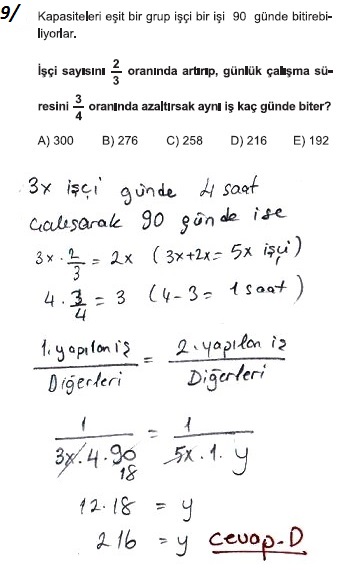 9/ Kapasiteleri eşit bir grup işçi bir işi 90 günde bitirebi-
liyorlar.
İşçi sayısını 2/3 oranında artırıp, günlük çalışma sü-
resini 3/4 oranında azaltırsak aynı iş kaç günde biter?
A) 300 B) 276 C) 258 D) 216 E) 192
3x işçi günde 4 saat
çalışarak 90 günde ise
3x · 2/3 = 2x (3x+2x= 5x işçi)
4 · 3/4 = 3 (4-3= 1 saat)
1. yapılan iş / Diğerleri = 2. yapılan iş / Diğerleri
1 / 3x. 4. 90 = 1 / 5x. 1. y
18
12.18 = y
216 = y cevap-D